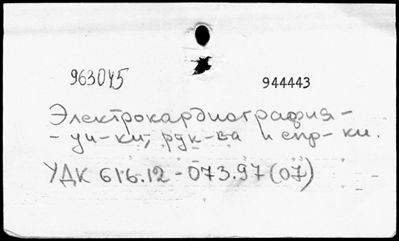 963045 944443
Электрокардиография -
- уч-ки, рук-ва и спр-ки.
УДК 616.12 - 073.97 (07)